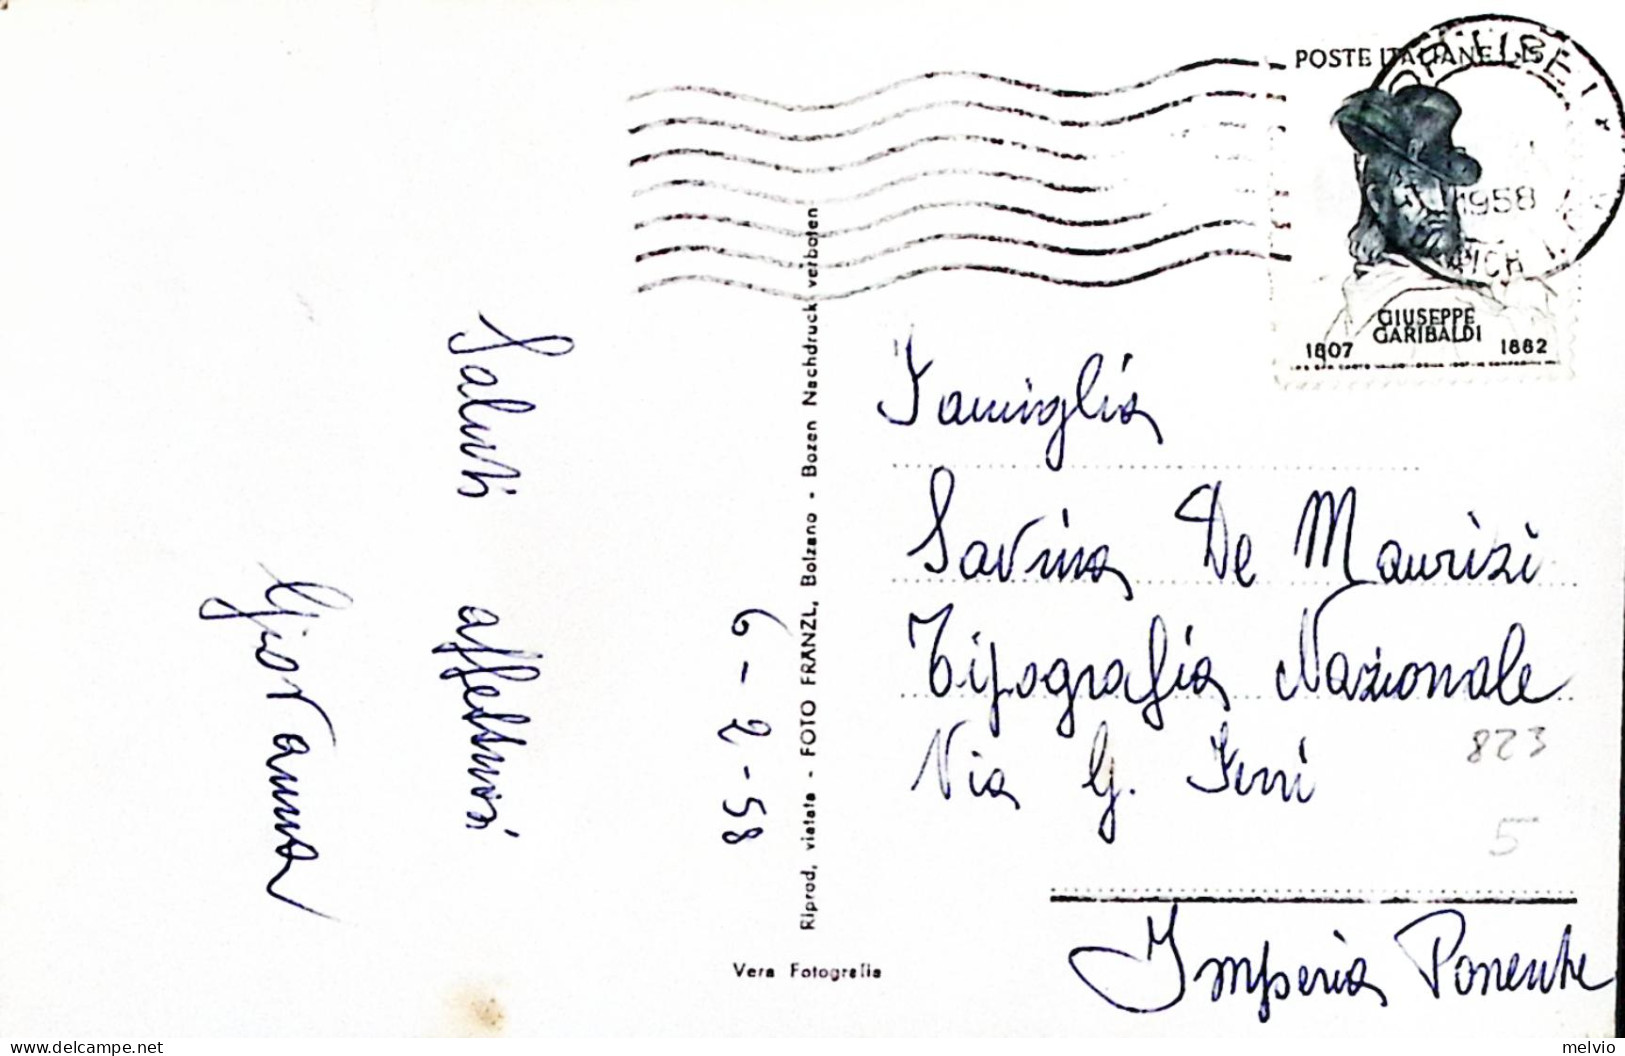 Saluti
affettuosi
Giovanna
6-2-58
Riprod. vietata - FOTO FRANZL, Bolzano - Bozen Nachdruck verboten
Vera Fotografia
POSTE ITALIANE L.15
1958
GIUSEPPE
GARIBALDI
1807 1882
Famiglia
Savina De Maurizi
Tipografia Nazionale
Via G.
823
5
Imperia Ponente
melvio